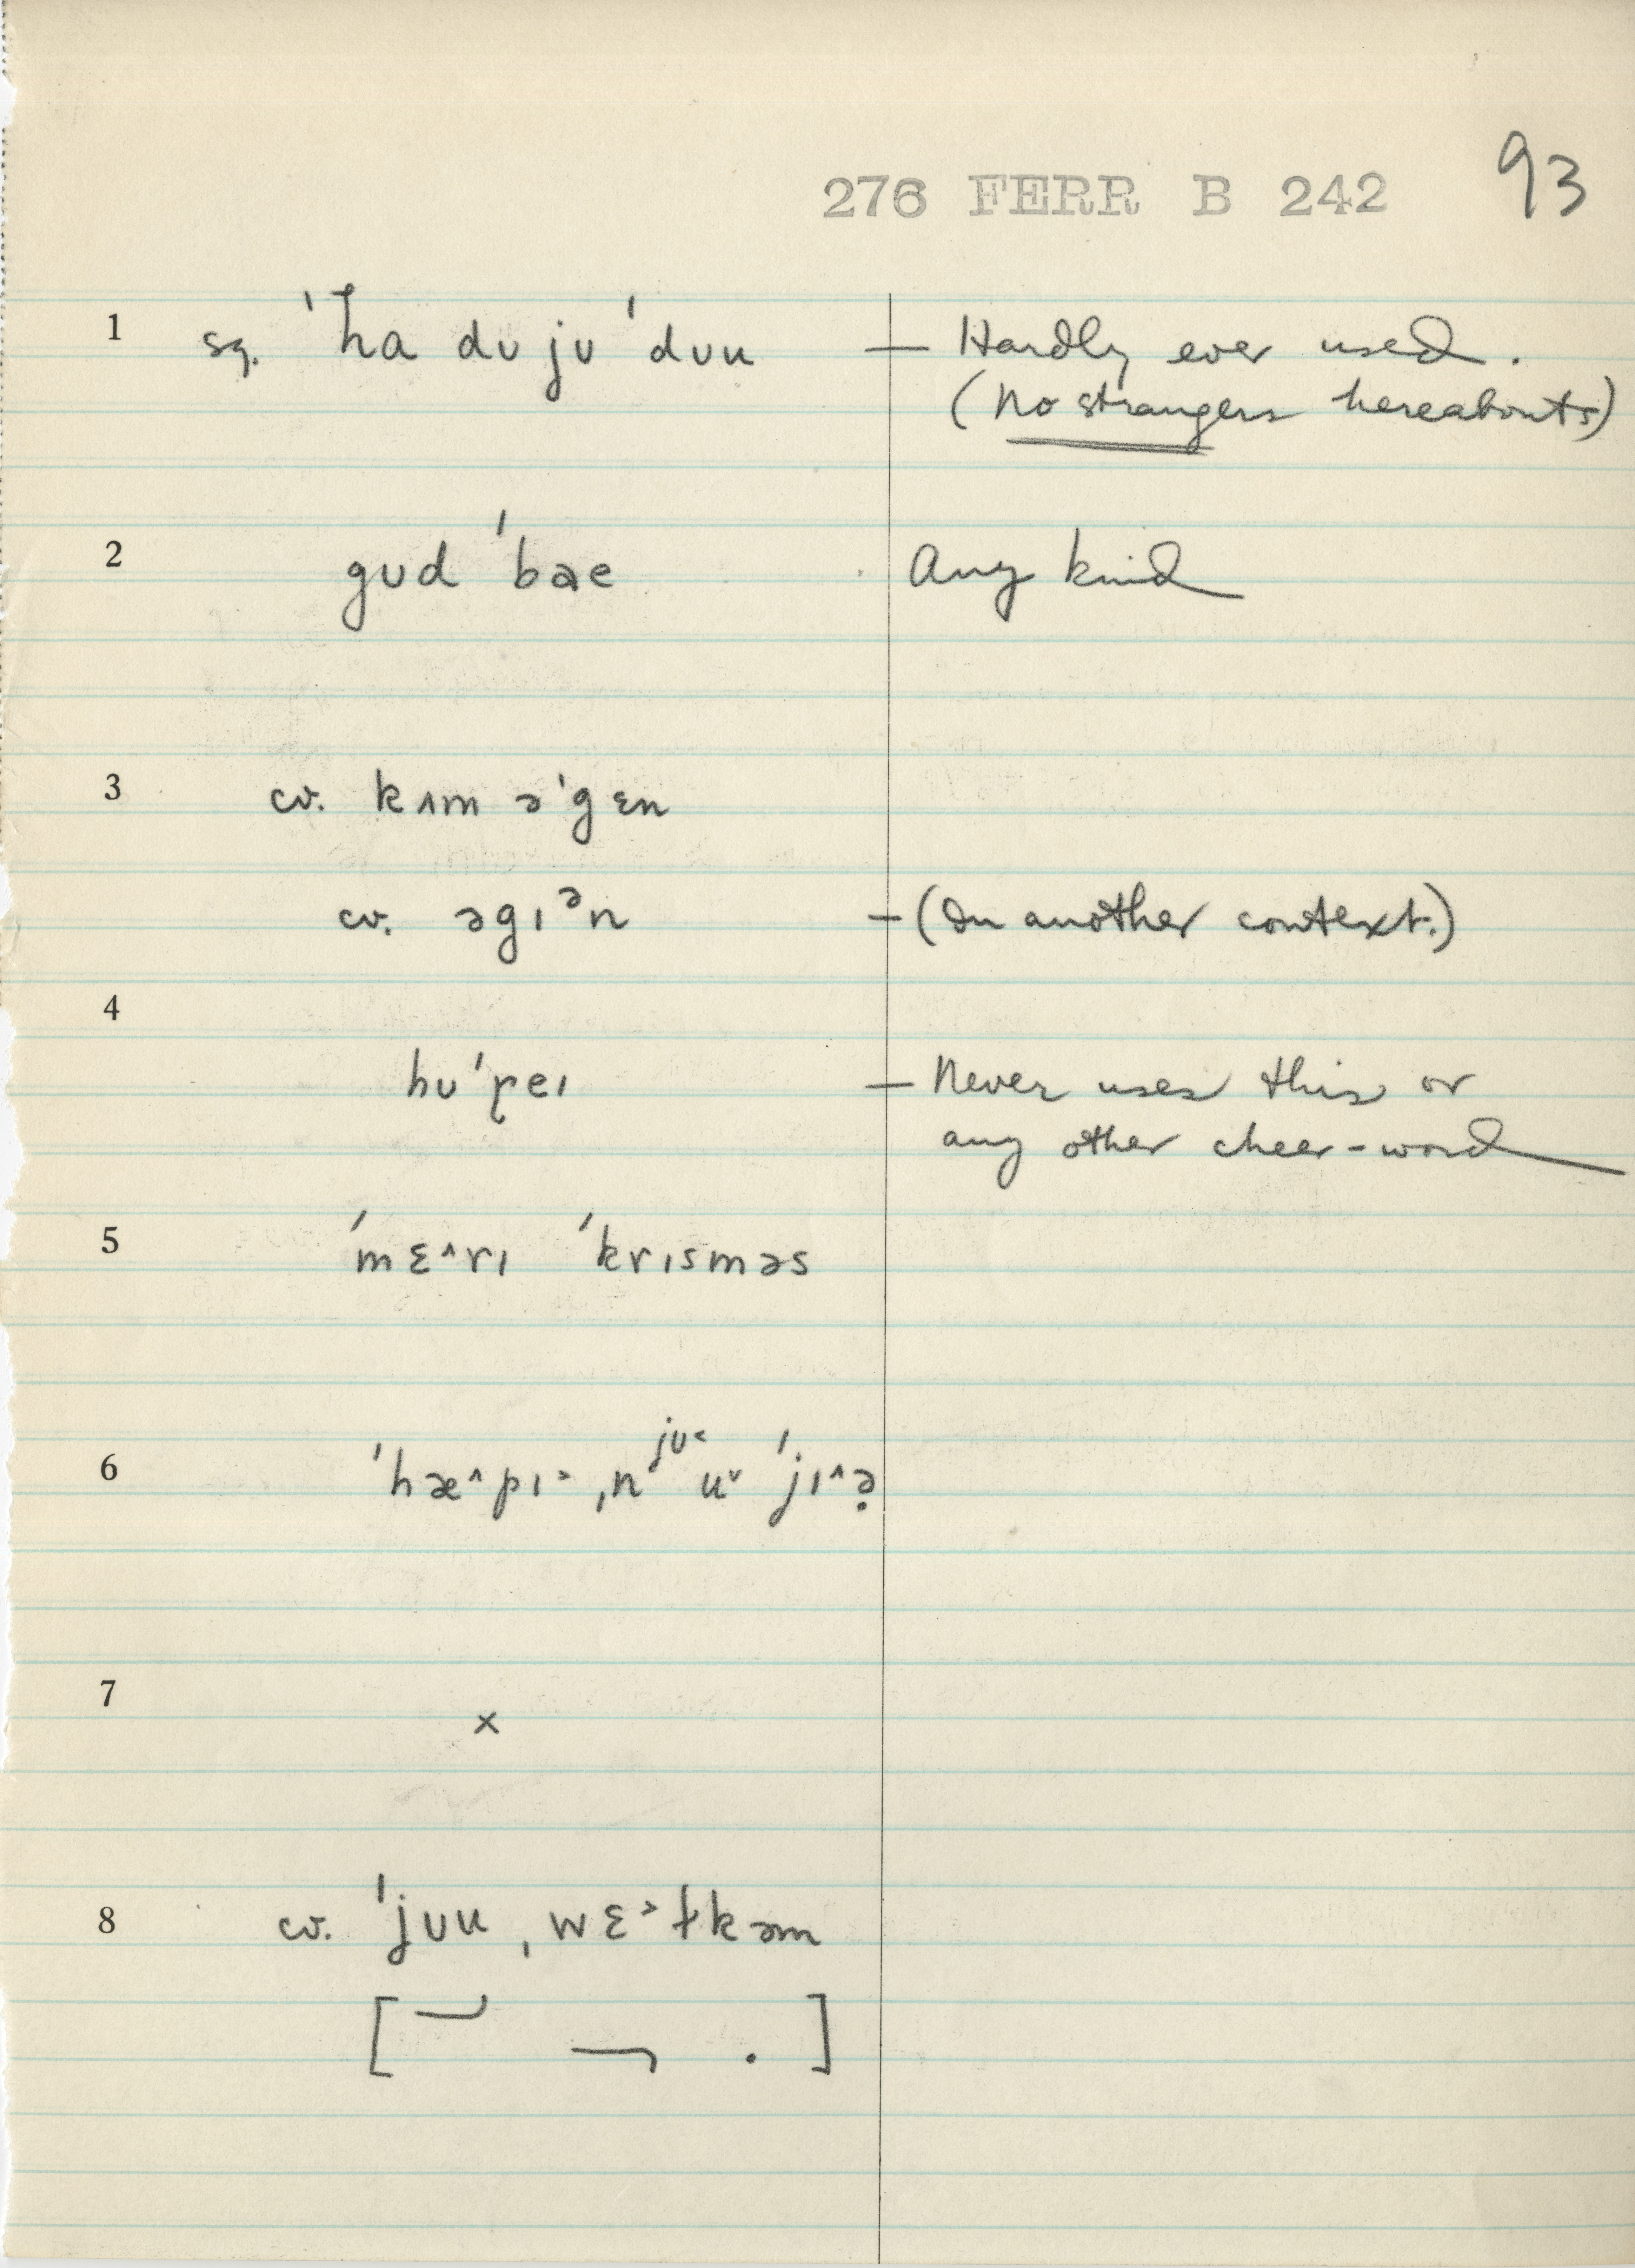 276 FERR B 242 93
1 sq. ˈha dʊ jʊ ˈdʊu — Hardly ever used.
(No strangers hereabouts)
2 gʊd ˈbae Any kind
3 cv. kʌm əˈgɛn
cv. əgɪᵊn — (In another context.)
4
hʊˈreɪ — Never uses this or
any other cheer-word
5 ˈmɛ^rɪ ˈkrɪsməs
jʊ˂
6 ˈhæ^pɪ˃ ˌn u˅ ˈjɪ^ə̣
7 ×
8 cv. ˈjʊu ˌwɛ˃ɫkəm
[ . ]